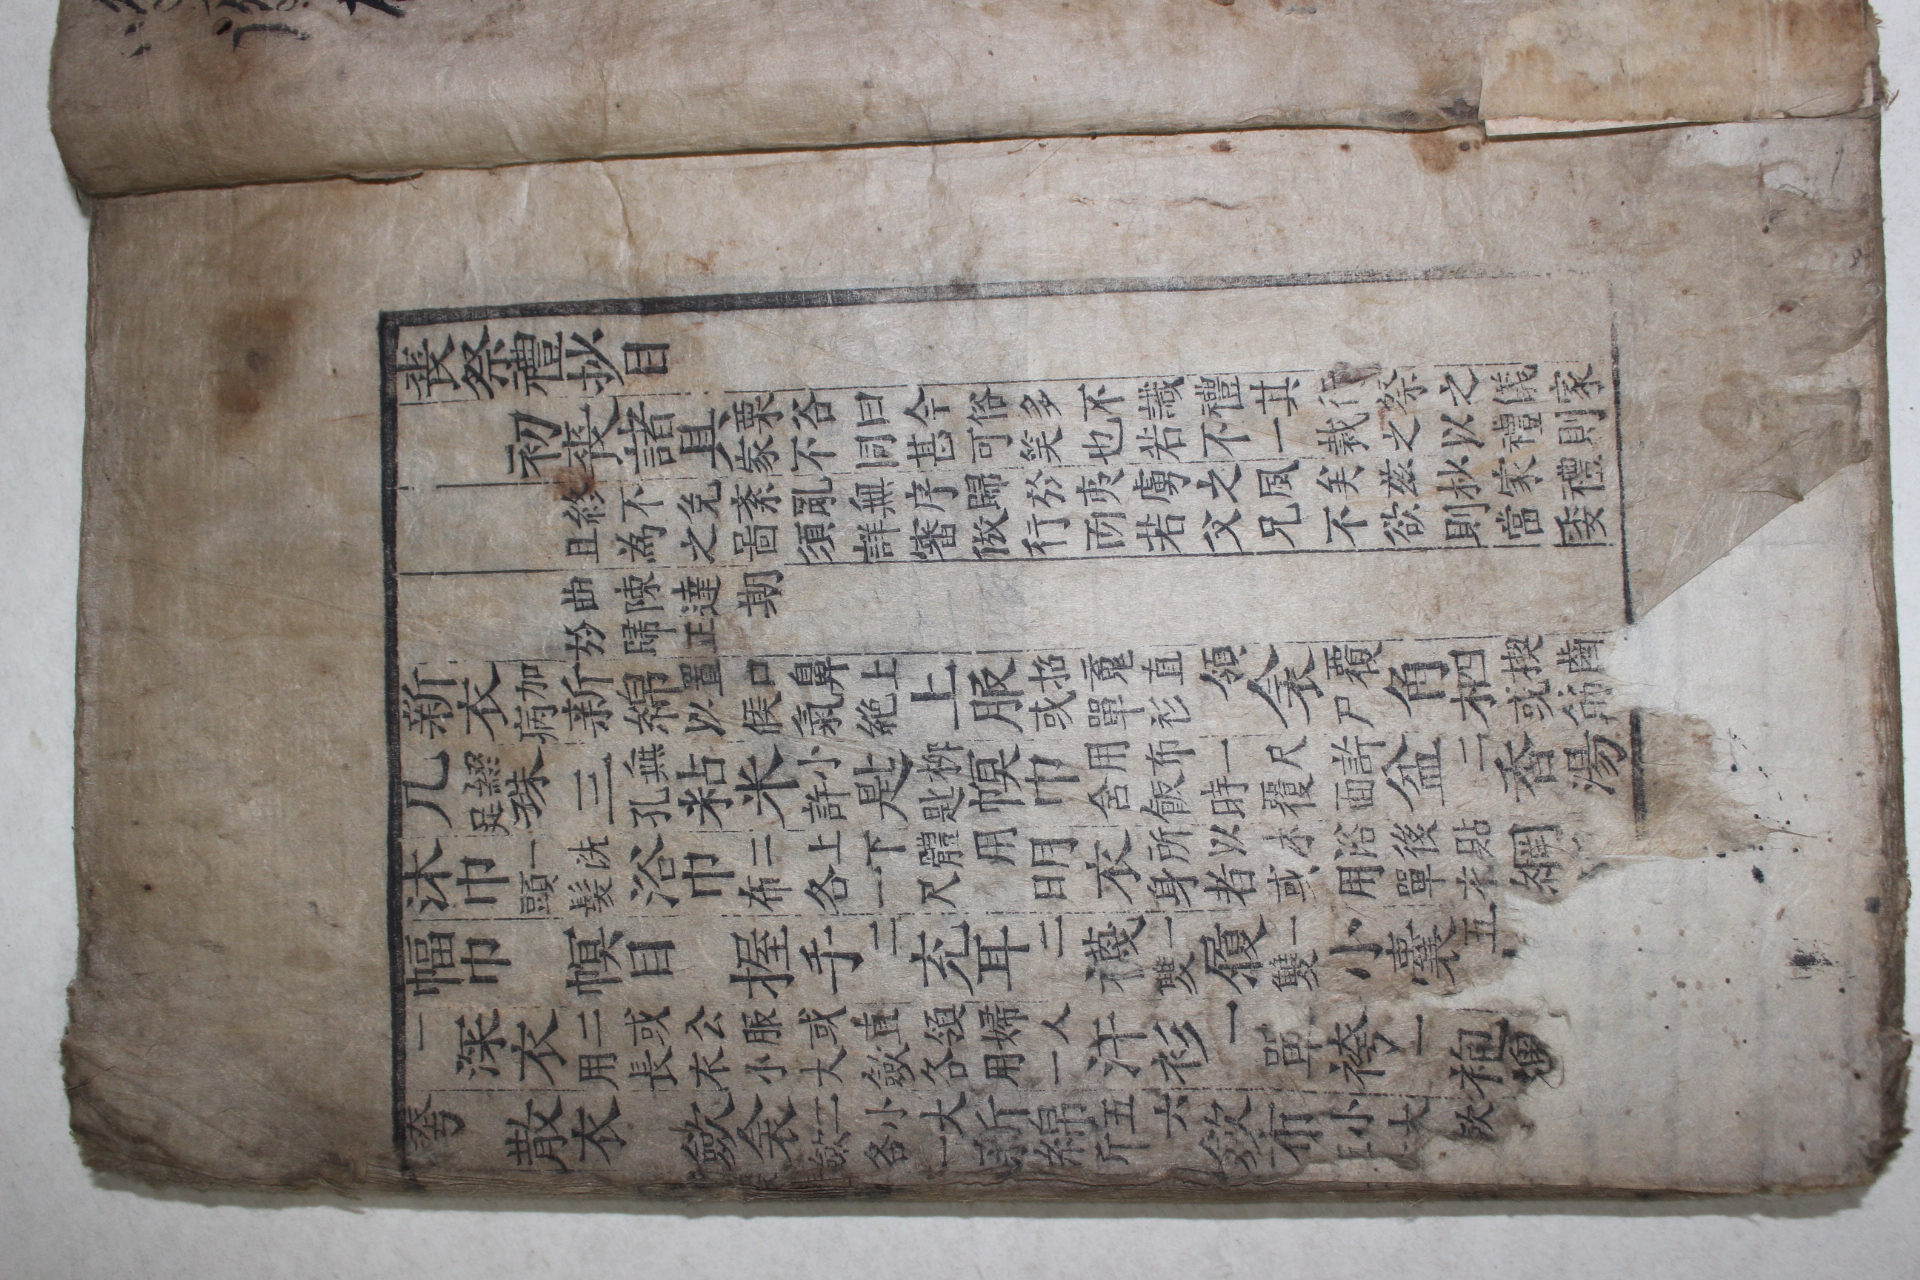 喪祭禮抄目
初喪諸具
栗谷曰今俗多不識禮其行祭之儀家
家不同甚可笑也若不一裁之以禮則
終不免紊亂無序歸於夷虜之風矣玆抄家禮
且為之啚須詳審倣行而若父兄不欲則當委
曲陳達期
於歸正
新衣 加病 新綿 置口鼻上以候氣絶 上服 招䰟直領或單衫 衾 覆尸 角柶 楔齒或筯
几 綴足 珠 三 無孔 粘米 小許 匙 柳匙 幎巾 用布一尺許含飯時覆面 盆 二 香湯
沐巾 一洗頭髮 浴巾 二上下體用布各一尺 明衣 所以沐浴後貼身者或用單衣 網
幅巾 幎目 握手 二 充耳 二 襪 一雙 履 一雙 小囊 五
一 深衣 二或公服或直領婦人用長衣小大斂各用一 汗衫 一 單袴 一 袍
袴 散衣 斂衾 二小大斂各一 新綿 五六斤 斂布 小大斂